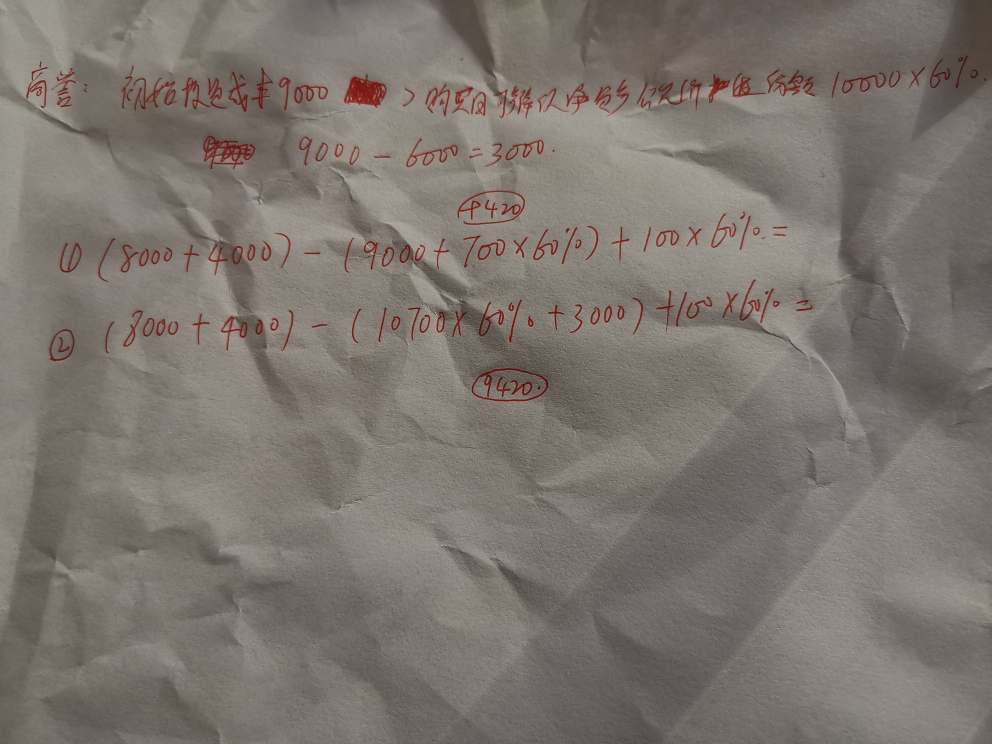 商誉: 初始投资成本9000 > 购买日可辨认净资产公允价值份额 10000×60%.
9000 - 6000 = 3000.
9420
① (8000 + 4000) - (9000 + 700×60%) + 100×60% =
② (8000 + 4000) - (10700×60% + 3000) + 100×60% =
9420.